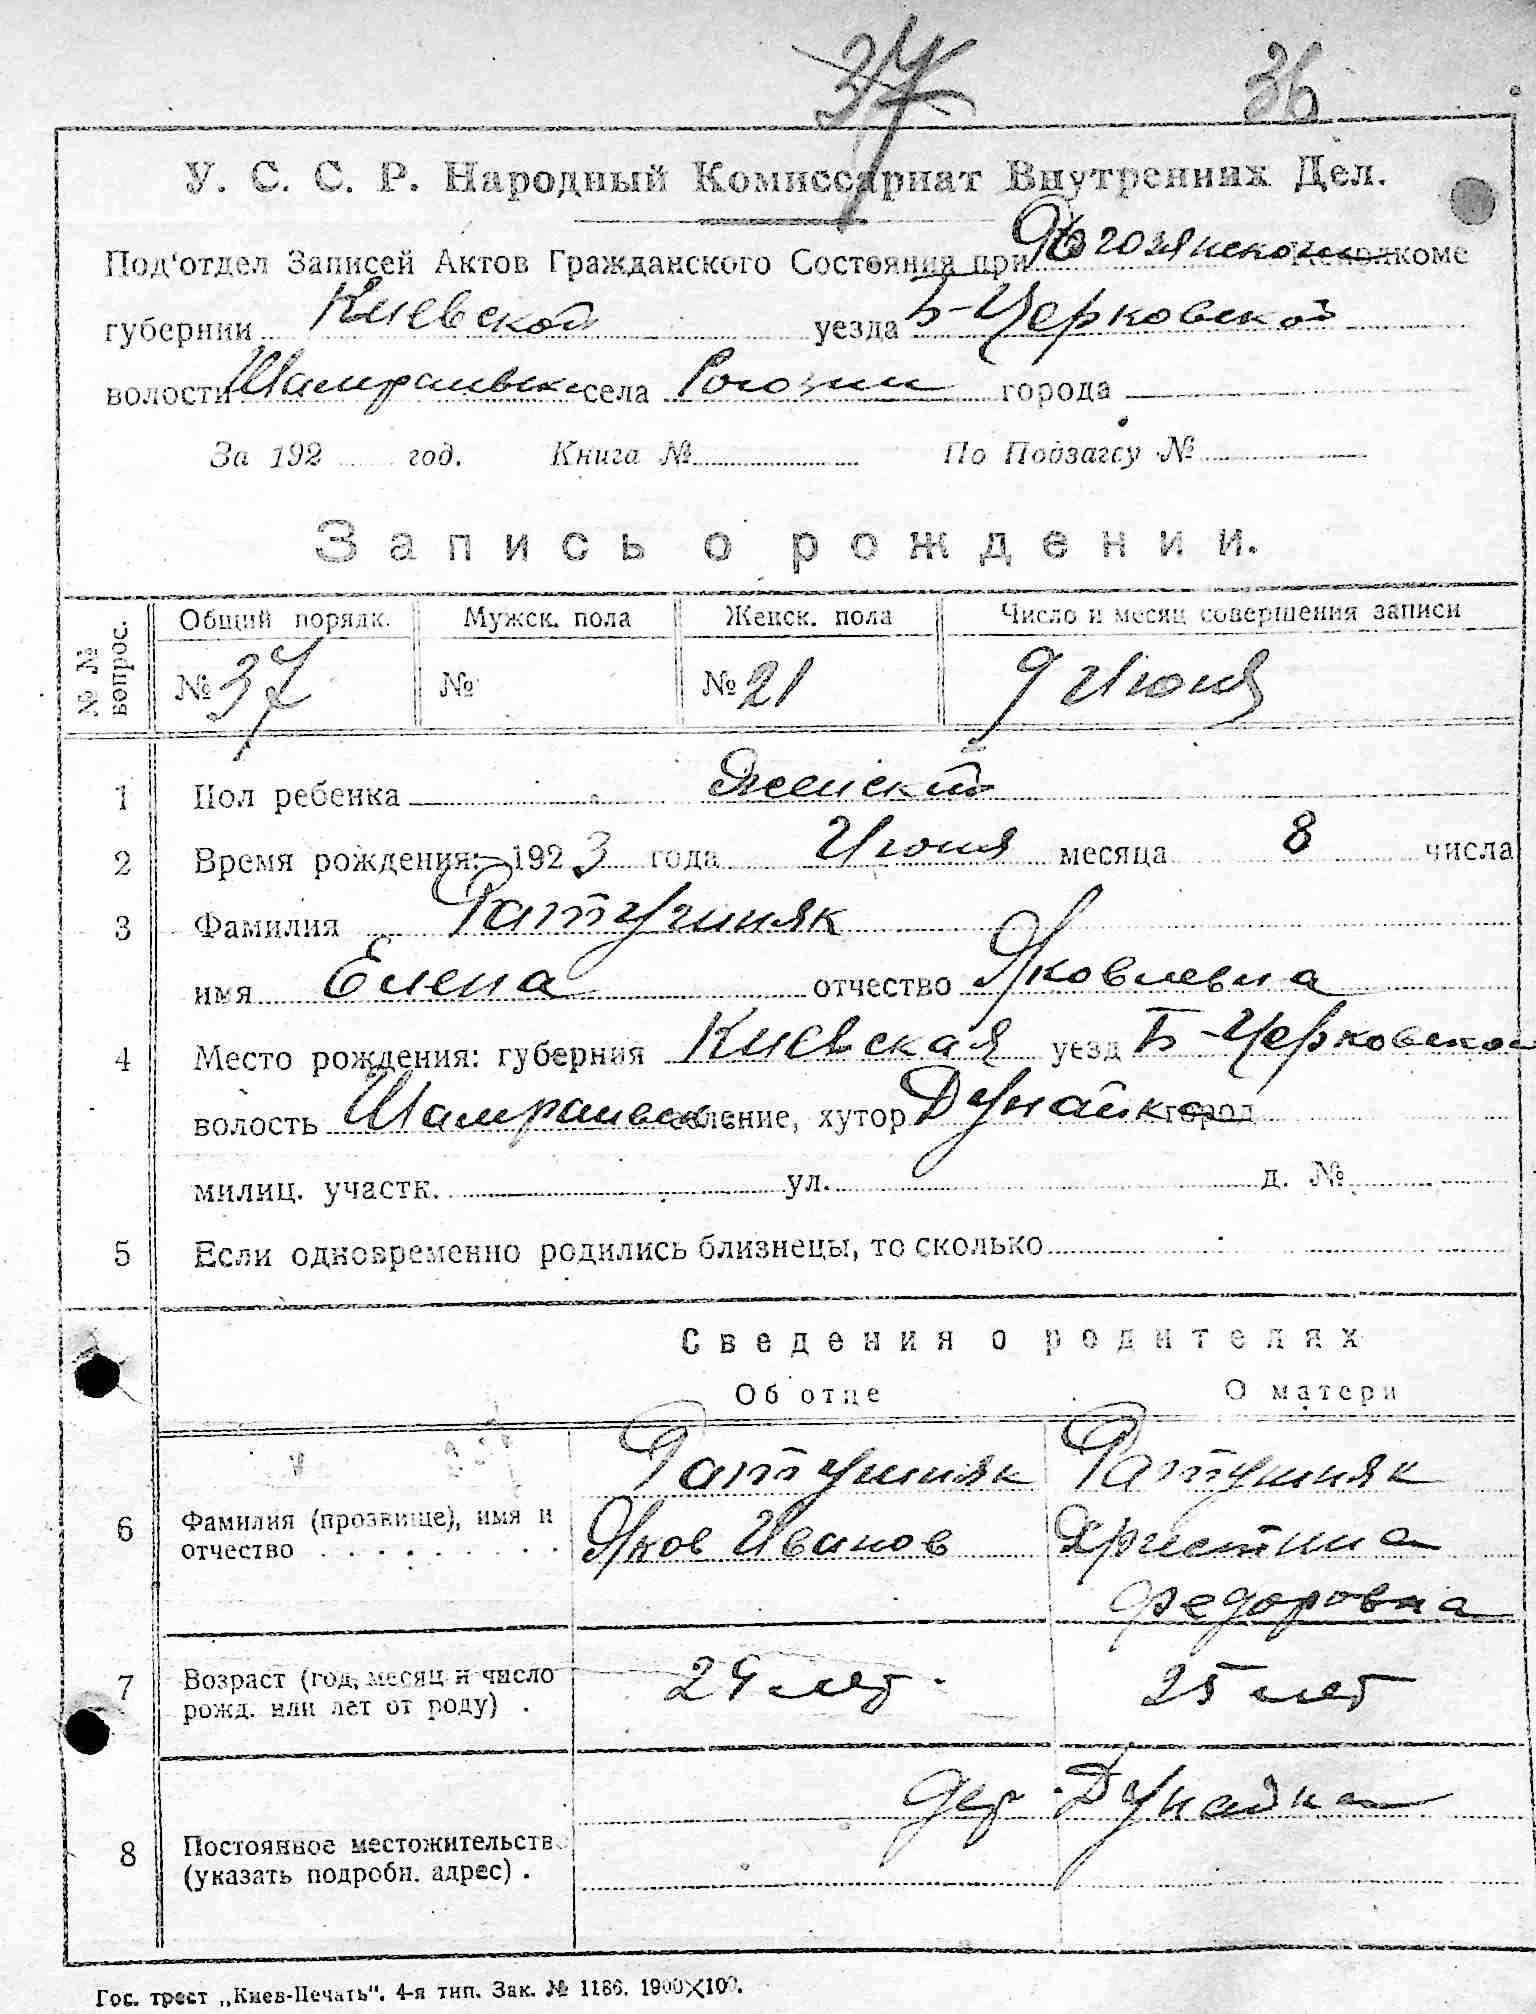 37 36
У. С. С. Р. Народный Комиссариат Внутренних Дел.
Под'отдел Записей Актов Гражданского Состояния при Рогозянском Исполкоме
губернии Киевской уезда Б-Церковской
волости Шамраивск села Рогозни города
За 192 год. Книга № По Подзагсу №
Запись о рождении.
№ № вопрос. Общий порядк. Мужск. пола Женск. пола Число и месяц совершения записи
№ 37 № № 21 9 Июня
1 Пол ребенка Женский
2 Время рождения: 1923 года Июня месяца 8 числа
3 Фамилия Ратушняк
имя Елена отчество Яковлевна
4 Место рождения: губерния Киевская уезд Б-Церковской
волость Шамраивск селение, хутор Дунайка город
милиц. участк. ул. д. №
5 Если одновременно родились близнецы, то сколько
Сведения о родителях
Об отце О матери
Ратушняк Ратушняк
6 Фамилия (прозвище), имя и Яков Иванов Христина
отчество
Федоровна
7 Возраст (год, месяц и число 24 лет. 25 лет
рожд. или лет от роду) .
дер. Дунайка
8 Постоянное местожительство
(указать подробн. адрес) .
Гос. трест „Киев-Печать". 4-я тип. Зак. № 1186. 1900×100.